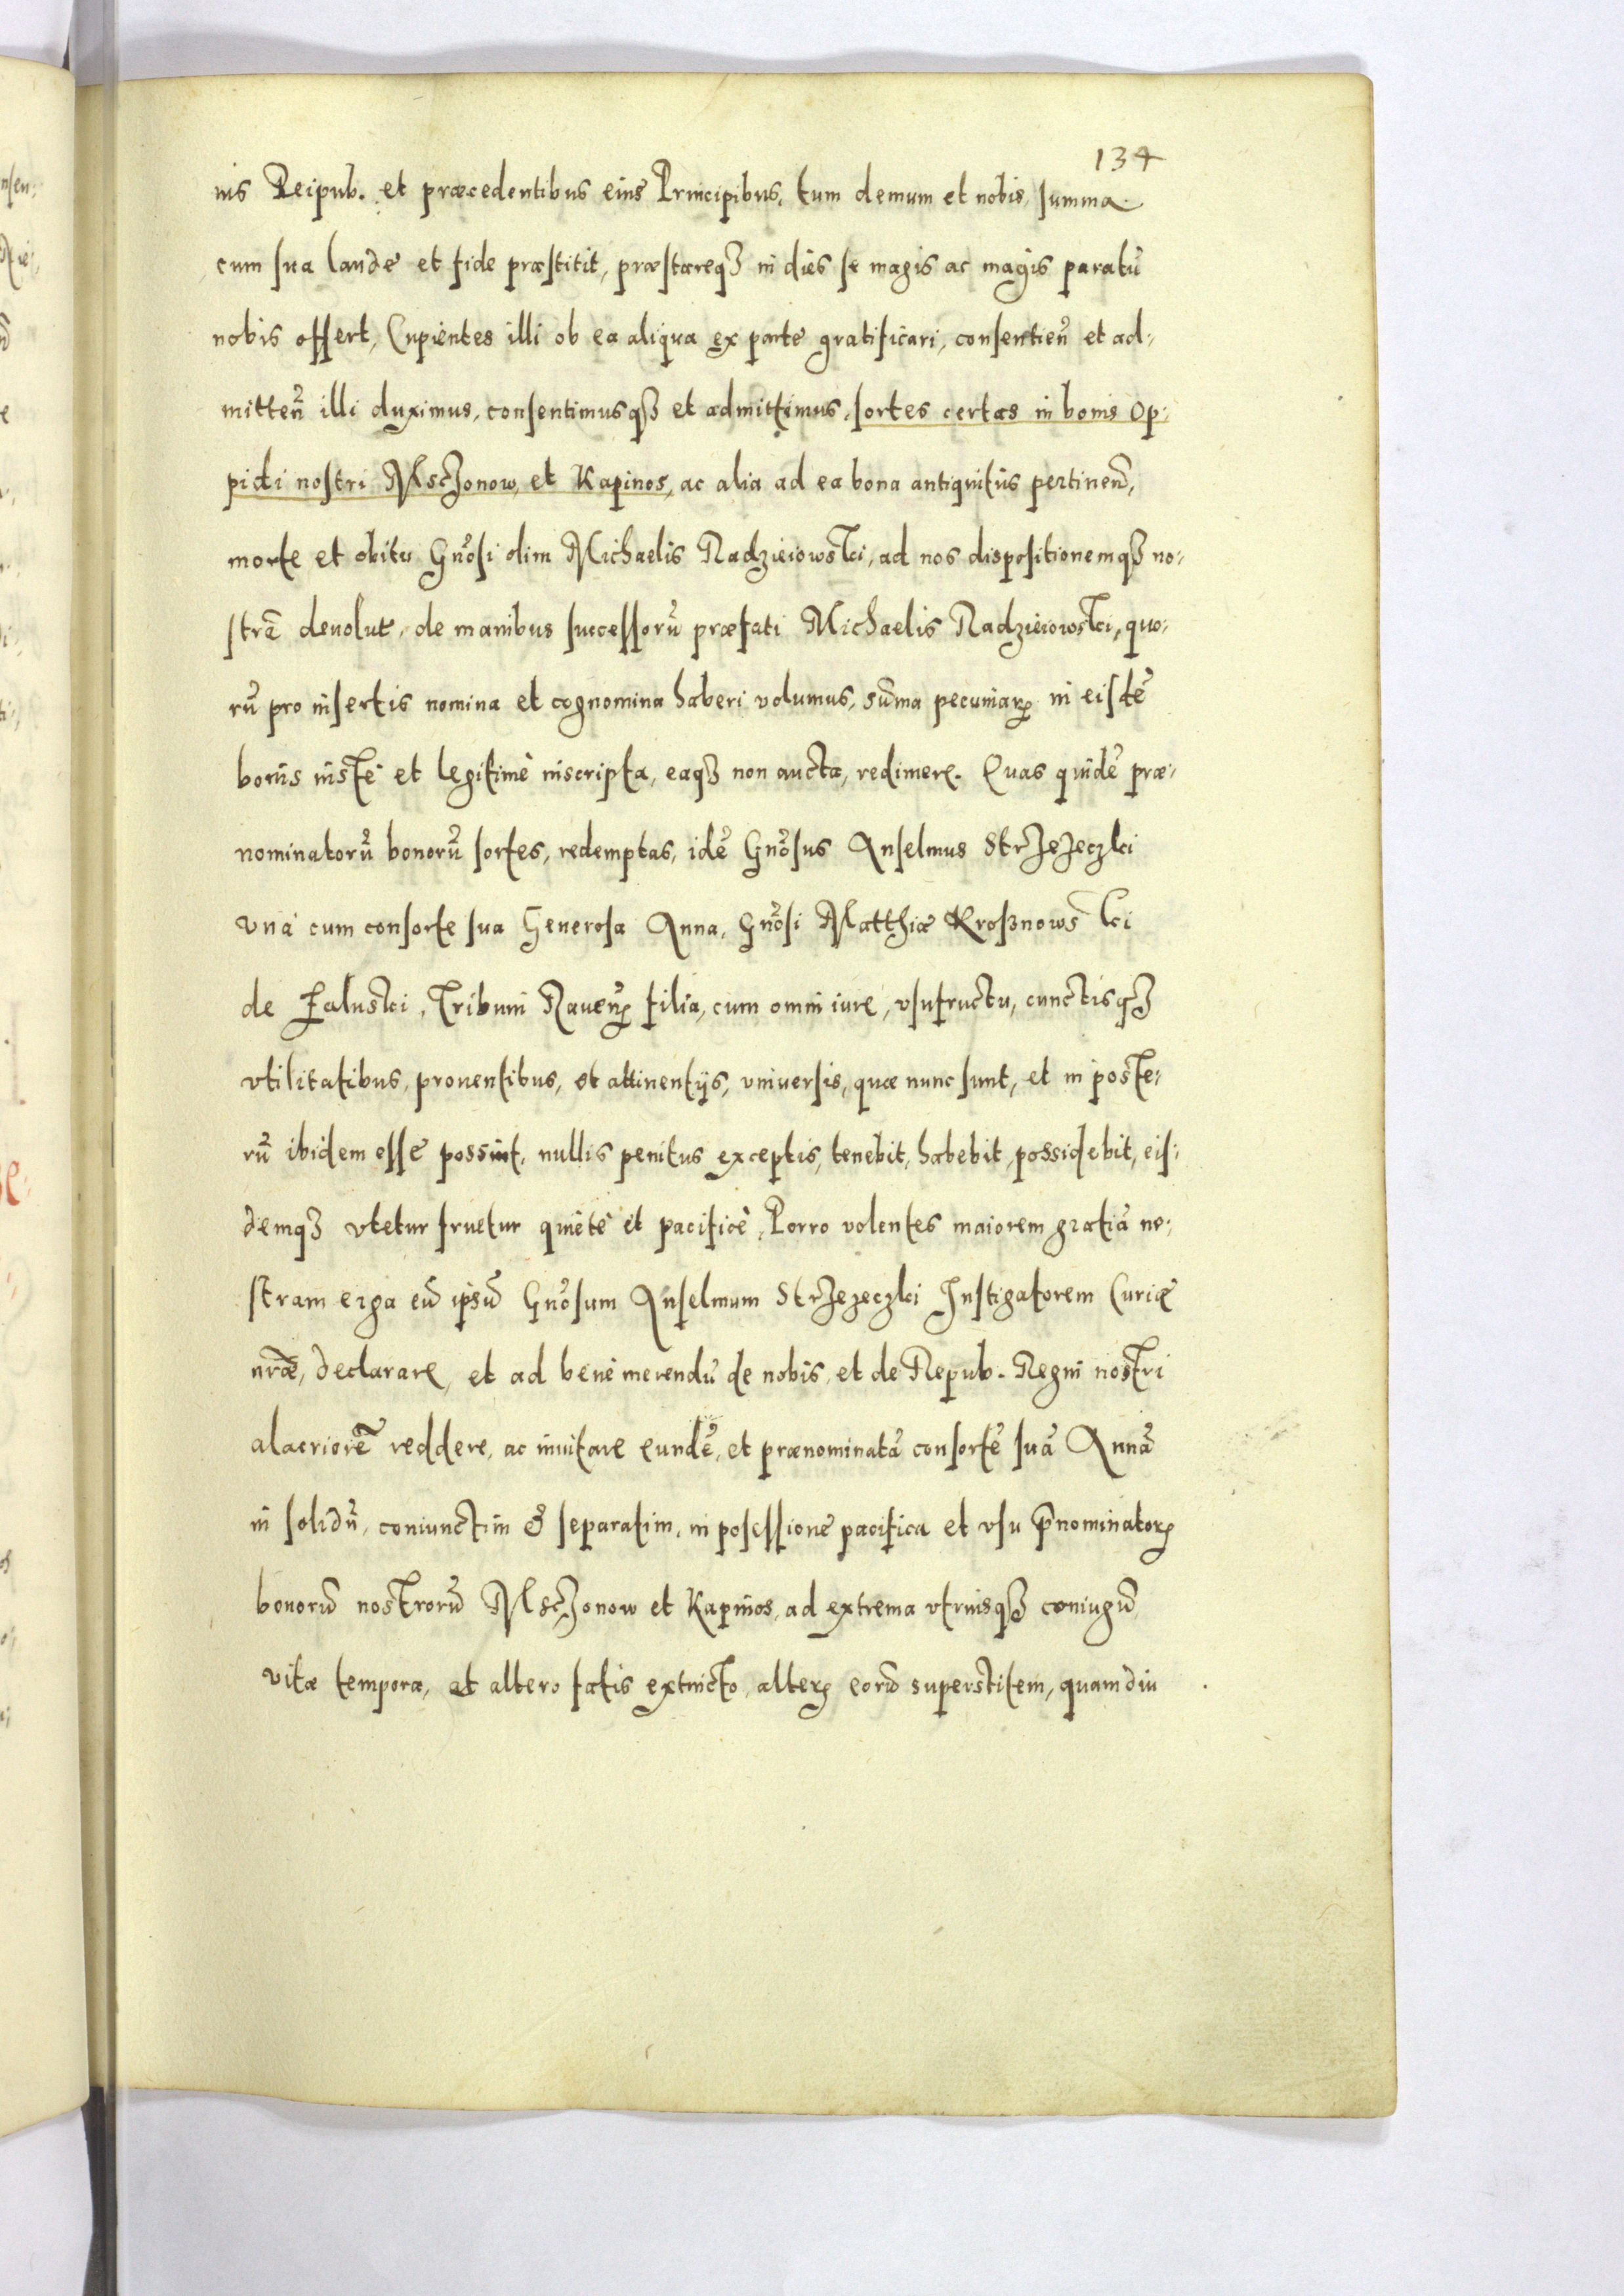 134
ius Reipub. et præcedentibus eius Principibus, tum demum et nobis, summa
cum sua laude et fide præstitit, præstareqȝ in dies se magis ac magis paratũ
nobis offert, Cupientes illi ob ea aliqua ex parte gratificari, consentieñ et ad-
mitteñ illi duximus, consentimusqȝ et admittimus, sortes certas in bonis Op-
pidi nostri Msczonow, et Kapinos, ac alia ad ea bona antiquitùs pertineñ,
morte et obitu Gñosi olim Michaelis Radzieiowski, ad nos dispositionemqȝ no-
strã deuolut, de manibus successorũ præfati Michaelis Radzieiowski, quo-
rũ pro insertis nomina et cognomina haberi volumus, sũma pecuniarꝝ in eisdẽ
bonis iustè et legitimè inscripta, eaqȝ non aucta, redimere. Quas quidẽ præ-
nominatorũ bonorũ sortes, redemptas, idẽ Gñosus Anselmus Strzezeczki
vnà cum consorte sua Generosa Anna, Gñosi Matthiæ Kroßnowski
de Faluski, Tribuni Raueñ filia, cum omni iure, vsufructu, cunctisqȝ
vtilitatibus, prouentibus, et attinentijs, vniuersis, quæ nunc sunt, et in poste-
rũ ibidem esse possint, nullis penitus exceptis, tenebit, habebit, possidebit, eis-
demqȝ vtetur fruetur quietè et pacificè, Porro volentes maiorem gratiã no-
stram erga eũ ipsũ Gñosum Anselmum Strzezeczki Instigatorem Curiæ
nræ, declarare, et ad benè merendũ de nobis, et de Repub. Regni nostri
alacriorẽ reddere, ac inuitare eundẽ, et prænominatã consortẽ suã Annã
in solidũ, coniunctim & separatim, in posessione pacifica et vsu p̃nominatorꝝ
bonorũ nostrorũ Msczonow et Kapinos, ad extrema vtriusqȝ coniugũ
vitæ tempora, at altero fatis extincto, alterꝝ eorũ superstitem, quamdiu